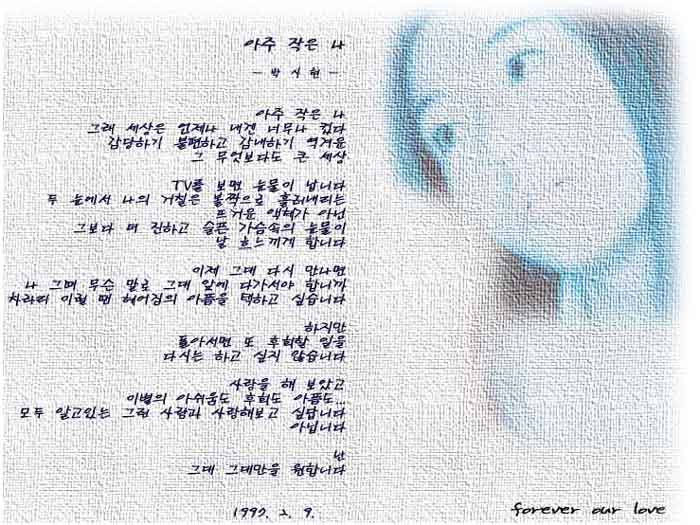 아주 작은 나
- 박 시 현 -
아주 작은 나
그래 세상은 언제나 내겐 너무나 컸다
감당하기 불편하고 감내하기 역겨운
그 무엇보다도 큰 세상
TV를 보면 눈물이 납니다
두 눈에서 나의 거칠은 볼짝으로 흘러내리는
뜨거운 액체가 아닌
그보다 더 진하고 슬픈 가슴속의 눈물이
날 흐느끼게 합니다
이제 그대 다시 만나면
나 그때 무슨 말로 그대 앞에 다가서야 합니까
차라리 이럴 땐 헤어짐의 아픔을 택하고 싶습니다
하지만
돌아서면 또 후회할 일을
다시는 하고 싶지 않습니다
사랑을 해 보았고
이별의 아쉬움도 후회도 아픔도...
모두 알고있는 그런 사람과 사랑해보고 싶답니다
아닙니다
난
그대 그대만을 원합니다
1997. 2. 9.
forever our love